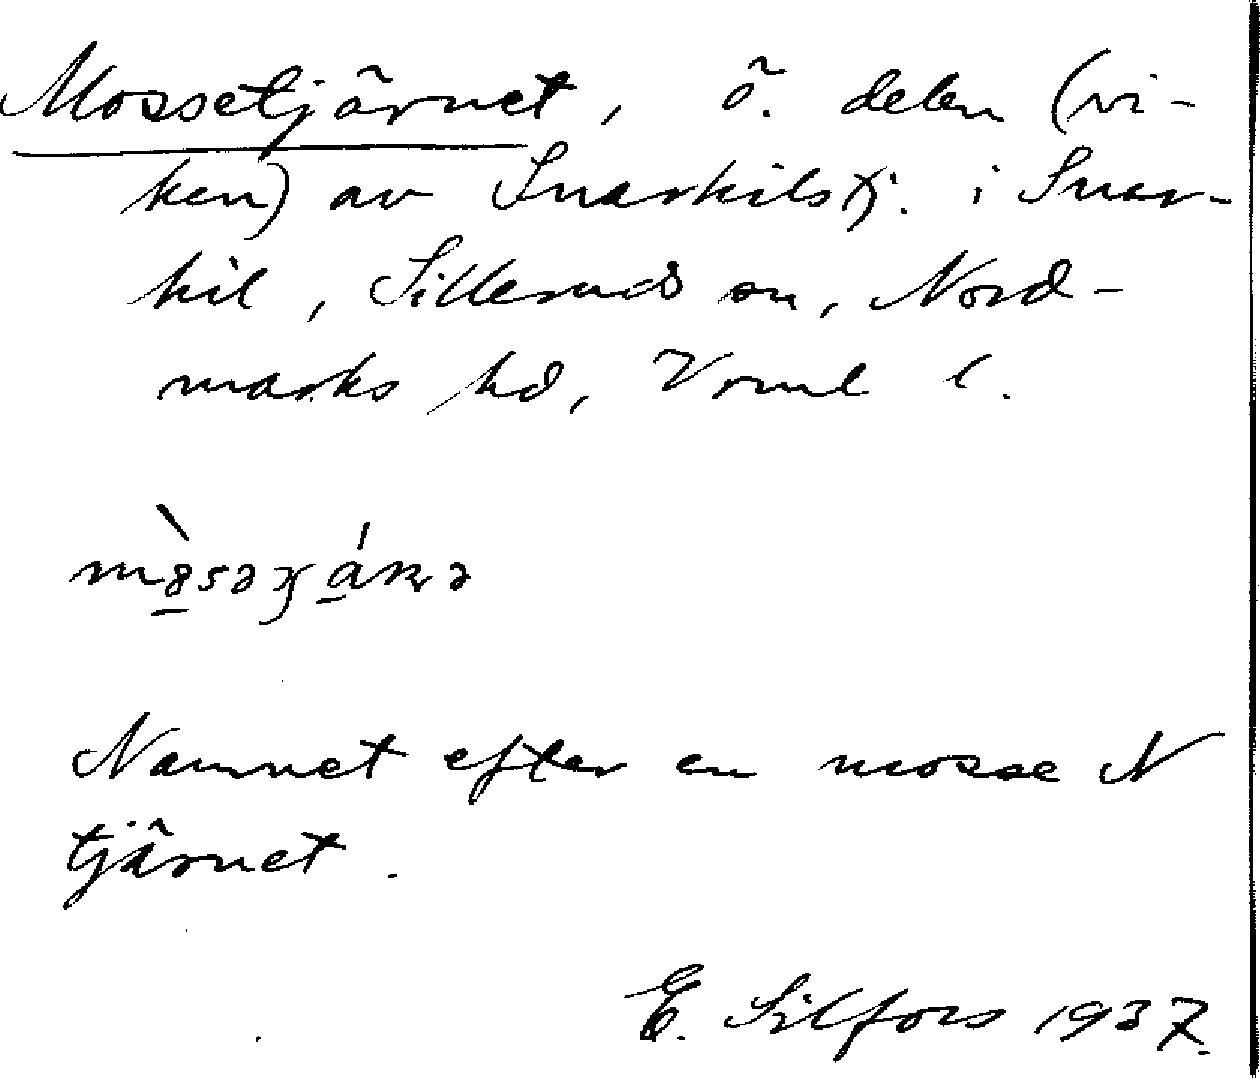 Mossetjärnet, ö. delen (vi-
ken) av Snarkilstj. i Snar-
kil, Silleruds sn, Nord-
marks hd, Vrml l.
Namnet efter en mosse N
tjärnet.
E. Silfors 1937.